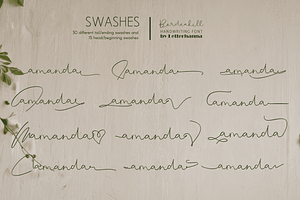 SWASHES
30 different tail/ending swashes and
15 head/beginning swashes
Bordershill
HANDWRITING FONT
by Letterhanna
amanda amanda amanda
amanda amanda amanda
amanda amanda amanda
amanda amanda amanda